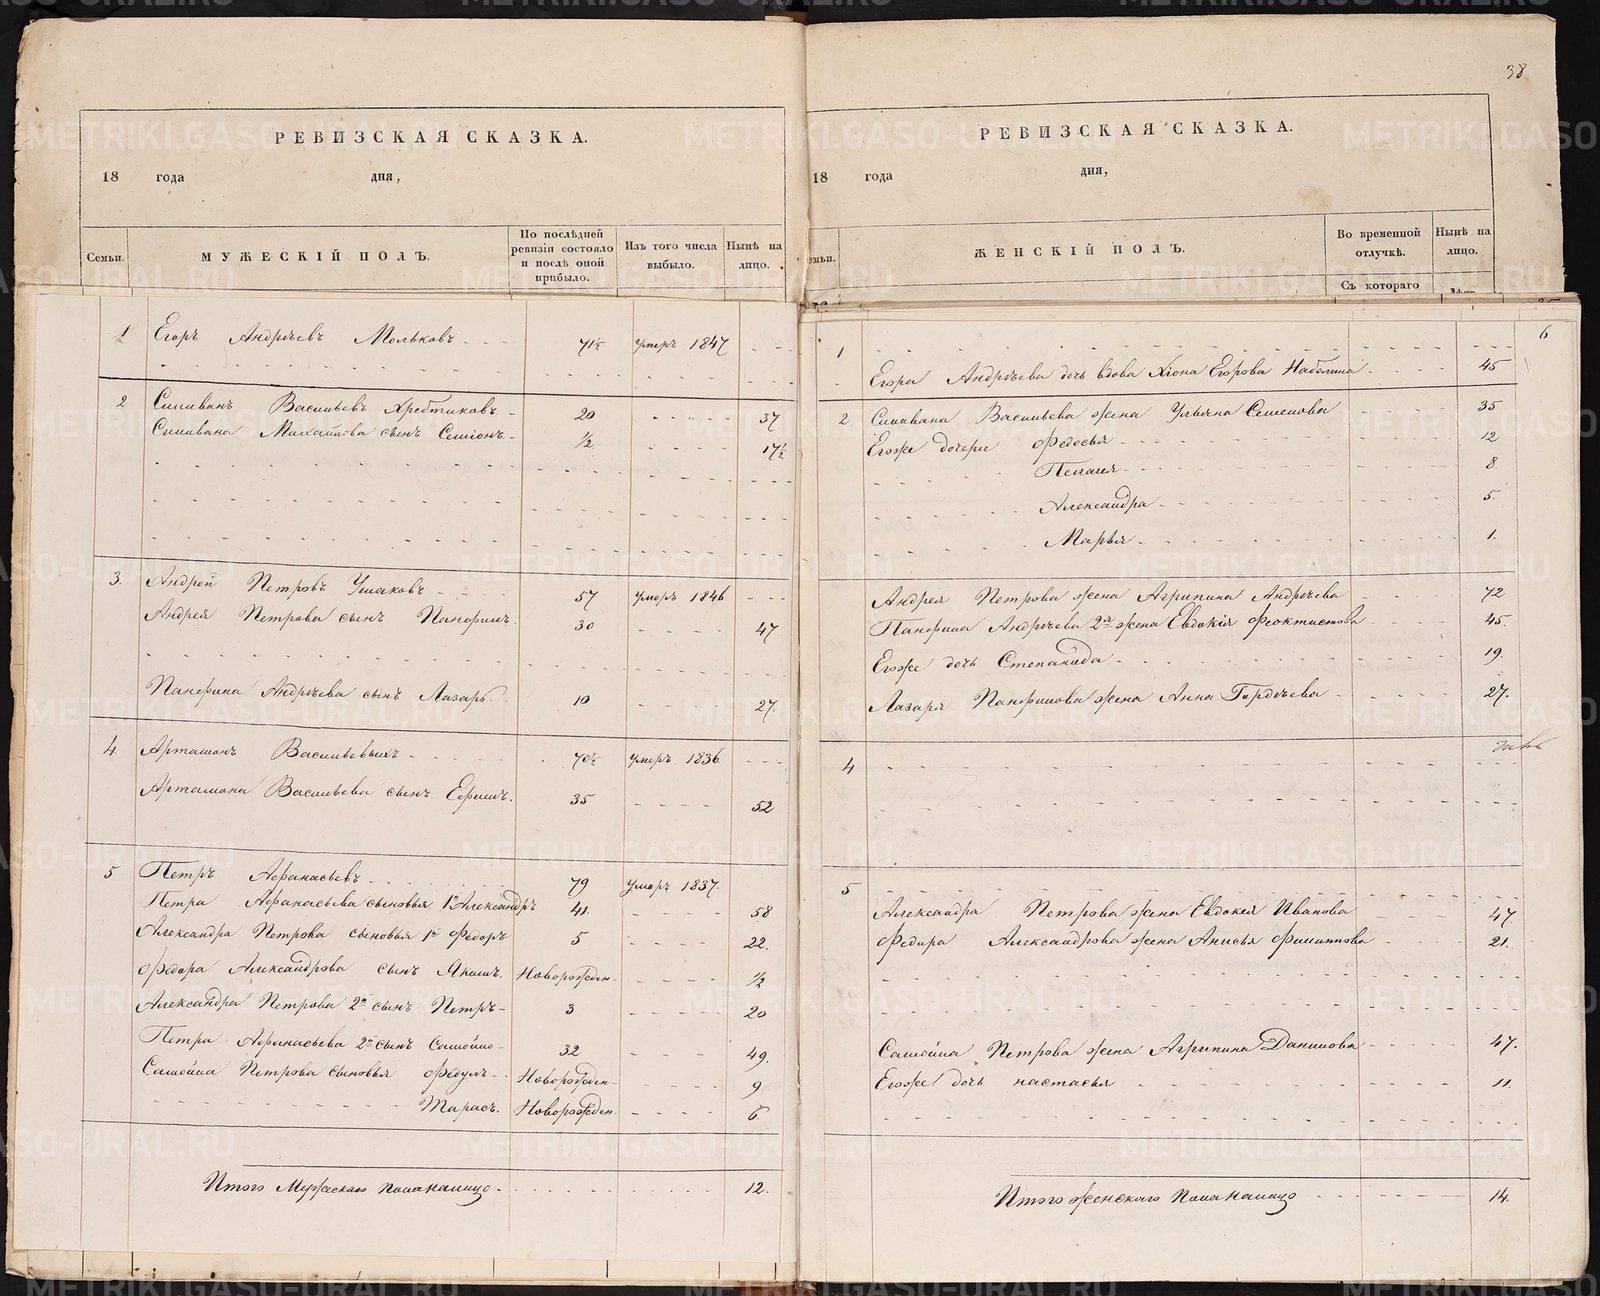 38
РЕВИЗСКАЯ СКАЗКА.
18 года дня,
Семьи. МУЖЕСКІЙ ПОЛЪ. По послѣдней ревизіи состояло и послѣ оной прибыло. Изъ того числа выбыло. Нынѣ на лицо.
1 Егоръ Андрѣевъ Мольковъ 71½ умеръ 1847
2 Силиванъ Васильевъ Хребтиковъ 20 37
Силивана Михайлова сынъ Семіонъ ½ 17½
3. Андрей Петровъ Ушаковъ 57 умеръ 1846
Андрея Петрова сынъ Панфилъ 30 47
Панфила Андрѣева сынъ Лазарь 10 27.
4 Артамонъ Васильевыхъ 70½ умеръ 1836
Артамона Васильева сынъ Ефимъ. 35 52
5 Петръ Афанасьевъ 79 умеръ 1837.
Петра Афанасьева сыновья 1й Александръ 41. 58
Александра Петрова сыновья 1й Федоръ 5 22.
Федора Александрова сынъ Якимъ. Новорожден. ½
Александра Петрова 2й сынъ Петръ 3 20
Петра Афанасьева 2й сынъ Самойло 32 49.
Самойла Петрова сыновья Федулъ Новорожден. 9
Тарасъ. Новорожден. 6
Итого Мужескаго пола налицо 12.
РЕВИЗСКАЯ СКАЗКА.
18 года дня,
емьи. ЖЕНСКІЙ ПОЛЪ. Во временной отлучкѣ. Нынѣ на лицо.
Съ котораго Лѣта
6
1
Егора Андрѣева дочь вдова Хіона Егорова 45
2 Силивана Васильева жена Ульяна Семенова 35
Егоже дочери Федосья 12
Пелагея 8
Александра 5.
Марья 1.
Андрея Петрова жена Агрипина Андрѣева 72
Панфила Андрѣева 2я жена Евдокія Феоктистова 45.
Егоже дочь Степанида 19.
Лазаря Панфилова жена Анна Гордѣева 27.
4
5
Александра Петрова жена Евдокея Иванова 47.
Федора Александрова жена Анисья Филиппова 21.
Самойла Петрова жена Агрипина Данилова 47.
Егоже дочь настасья 11.
Итого женскаго пола налицо 14.
METRIKI.GASO-URAL.RU